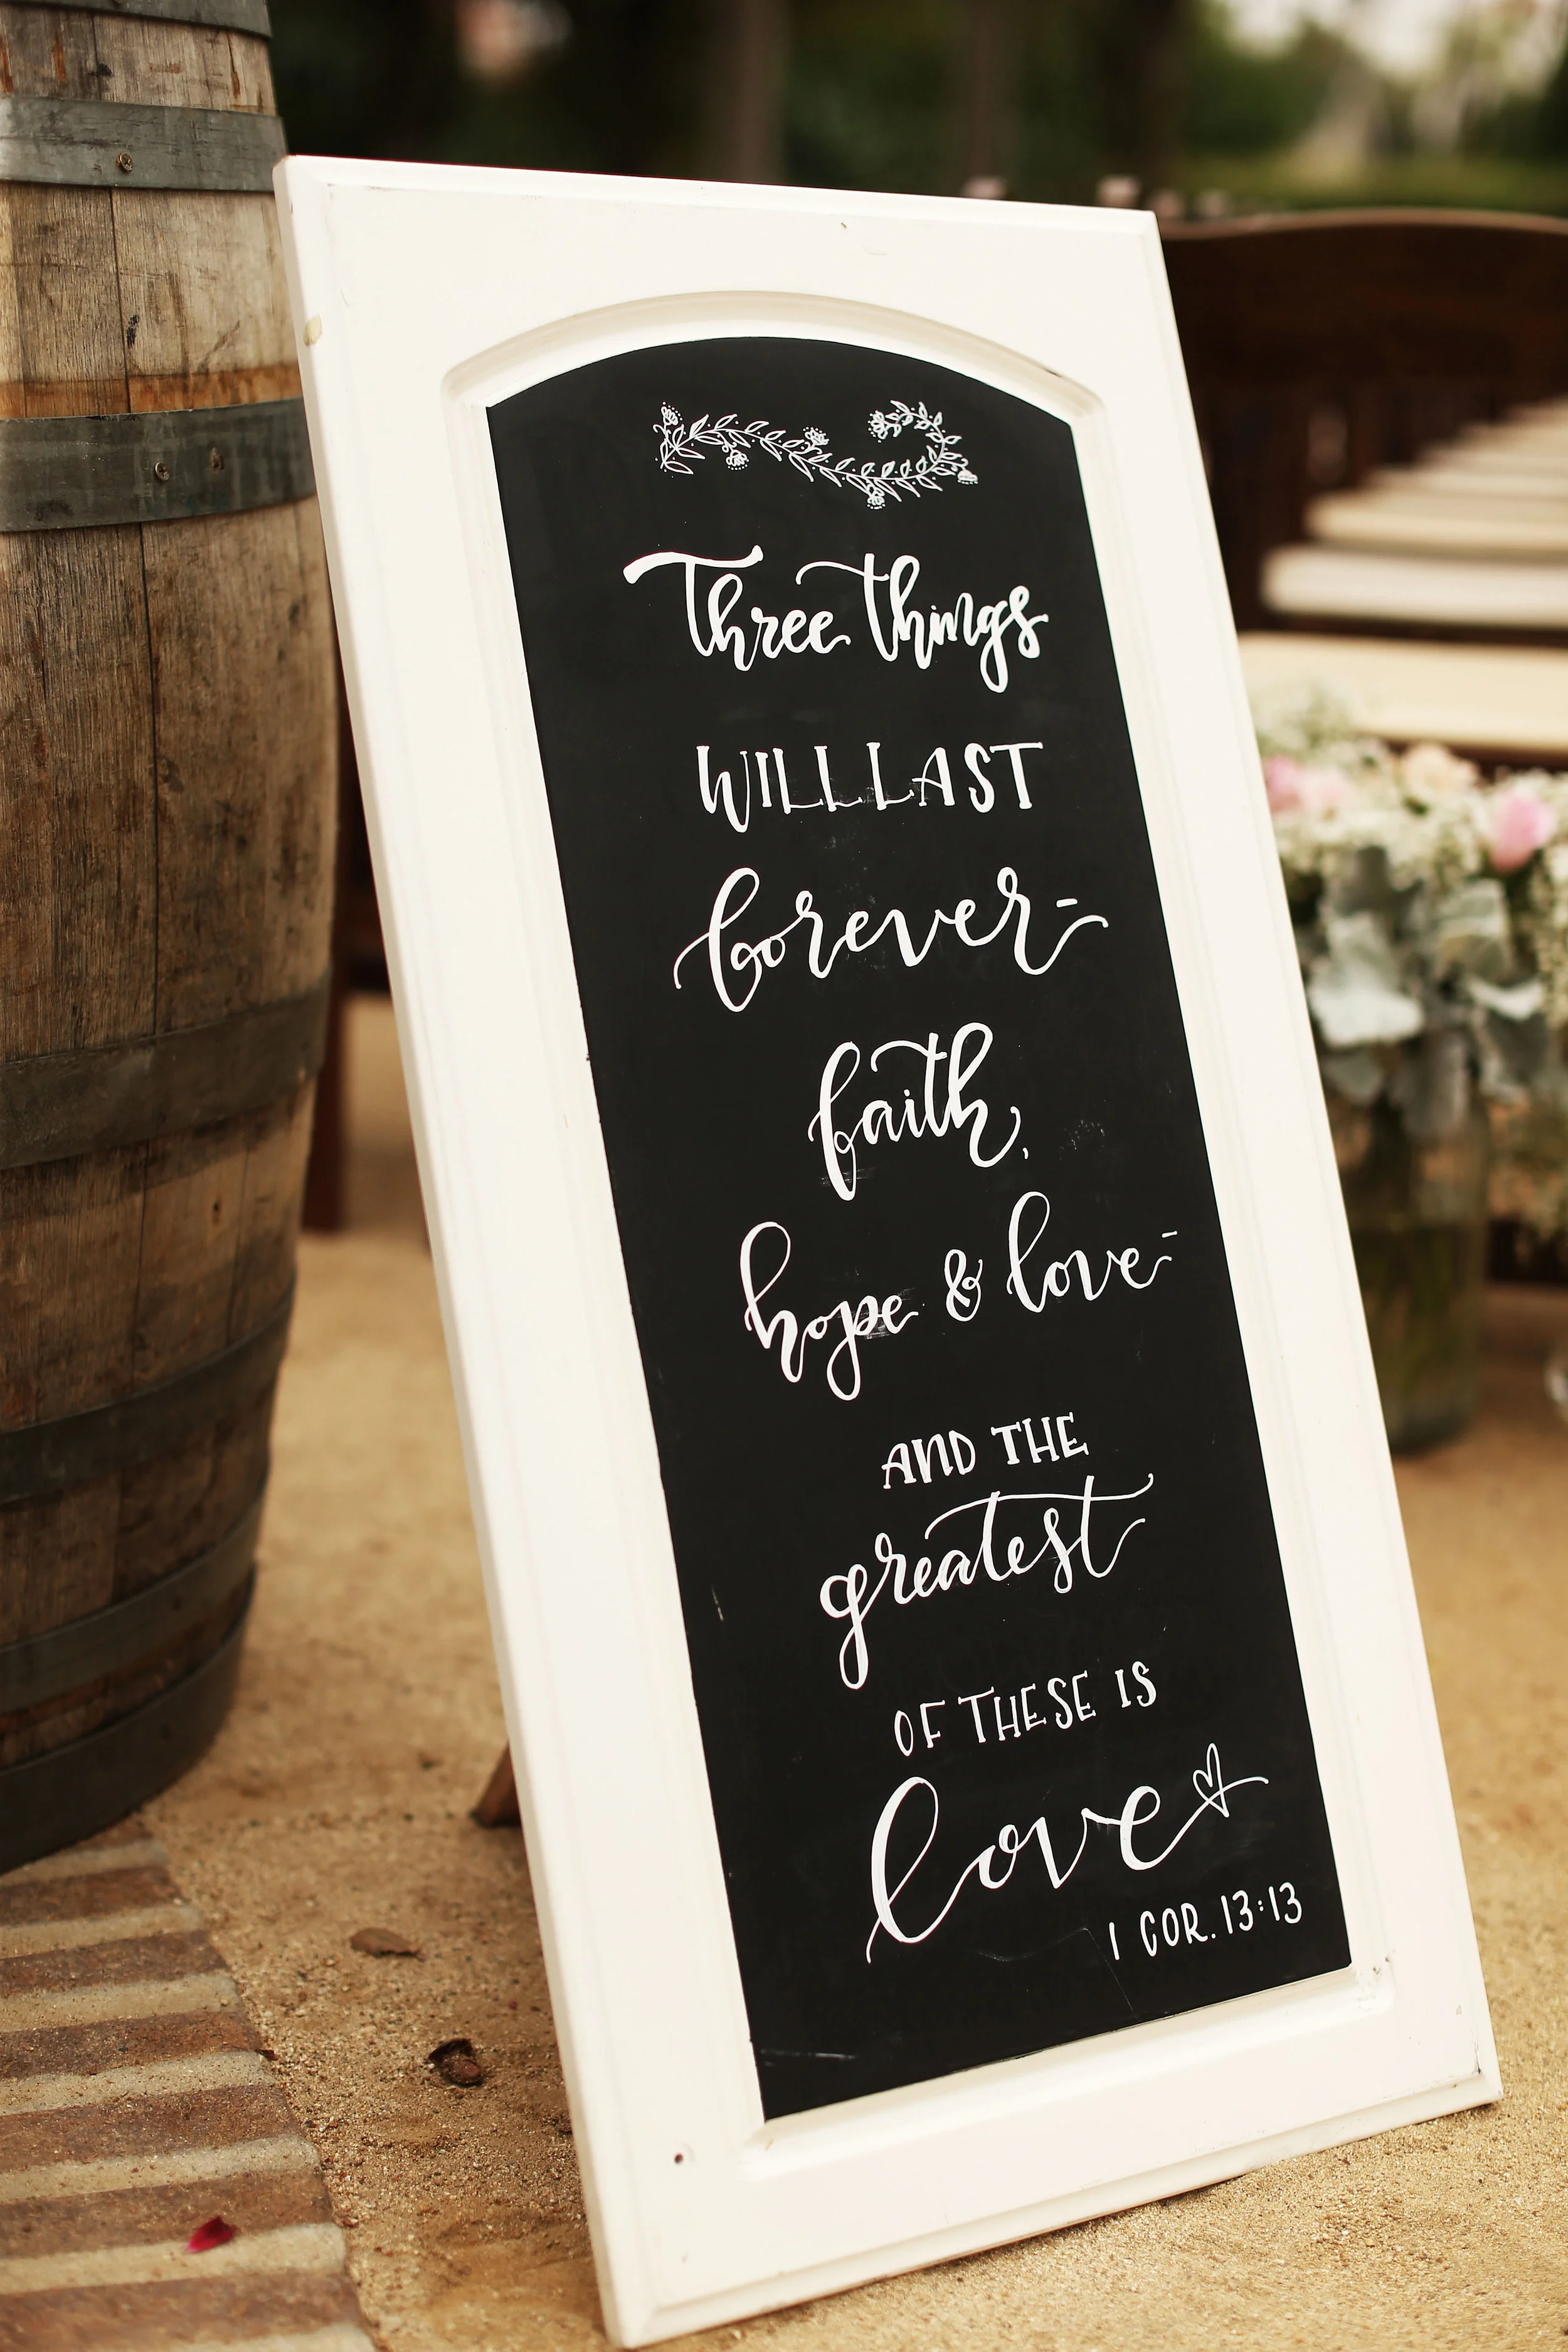 Three things
WILL LAST
forever-
faith,
hope & love-
AND THE
greatest
OF THESE IS
love
1 COR. 13:13